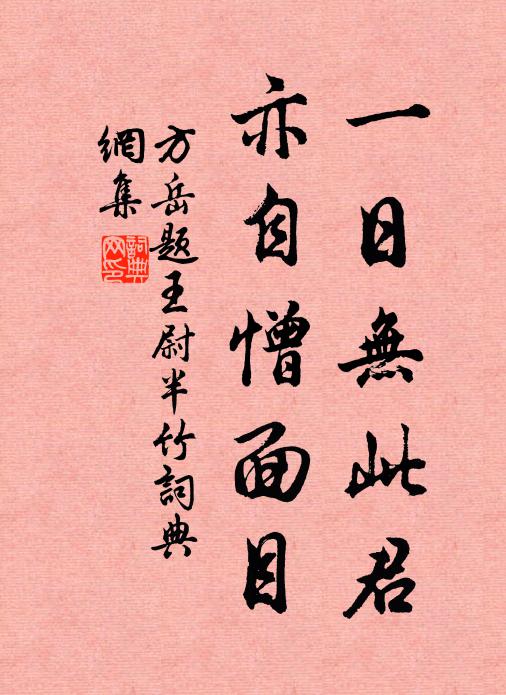 一日無此君
亦自憎面目
方岳題王尉半竹詞典
網集
詞典
網印